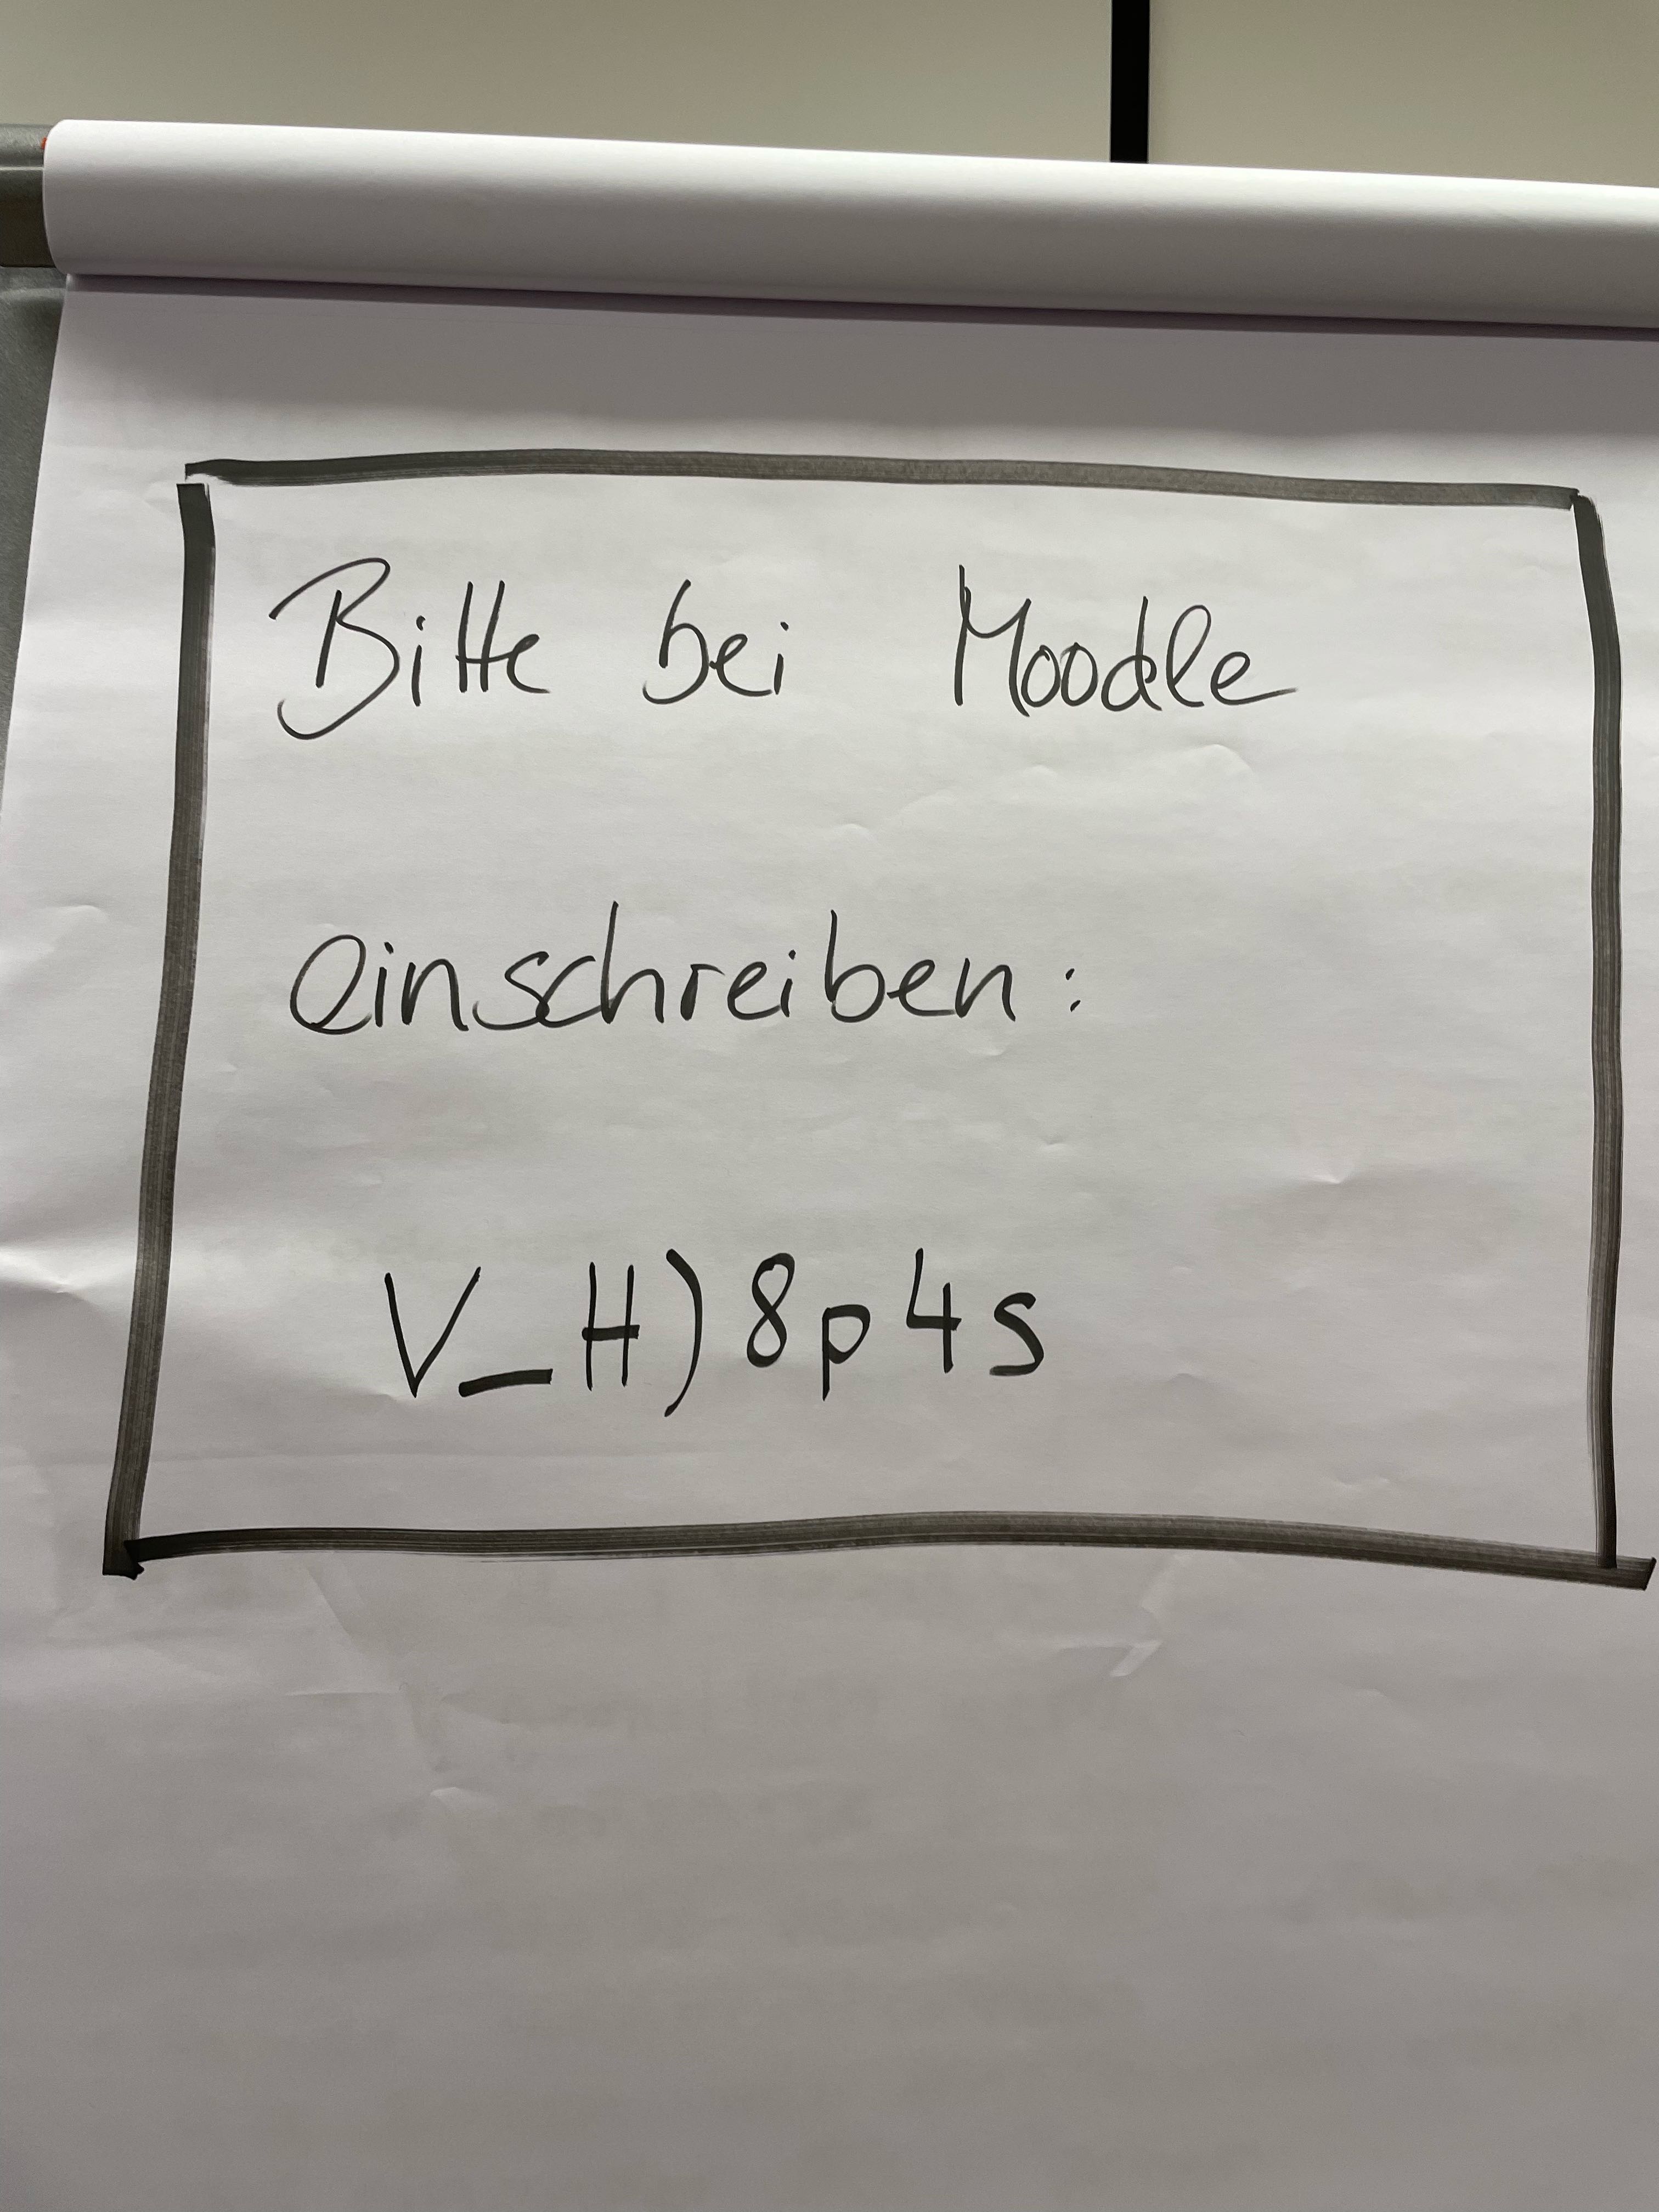 Bitte bei Moodle
einschreiben:
V_H)8p4s